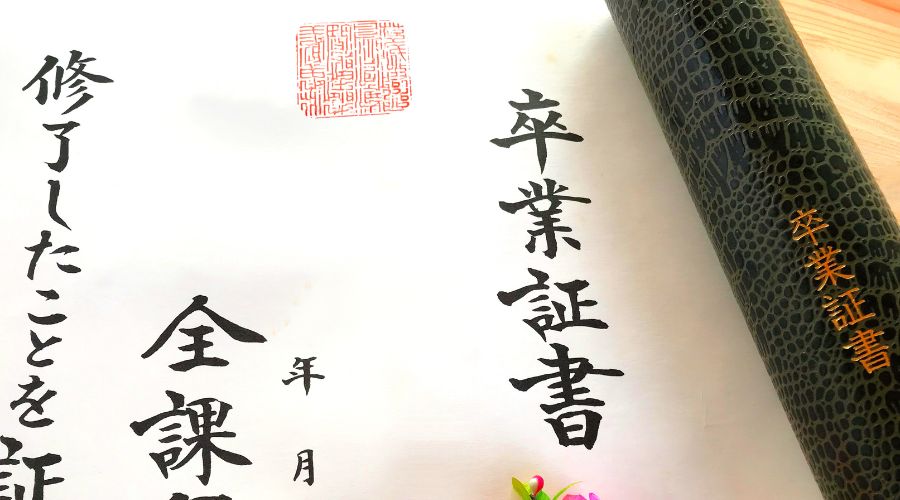 卒業証書
卒業証書
年 月
全課
修了したことを証